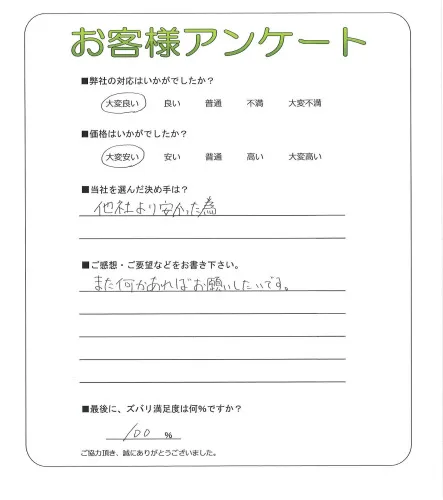 お客様アンケート
■弊社の対応はいかがでしたか？
大変良い 良い 普通 不満 大変不満
■価格はいかがでしたか？
大変安い 安い 普通 高い 大変高い
■当社を選んだ決め手は？
他社より安かった為
■ご感想・ご要望などをお書き下さい。
また何かあればお願いしたいです。
■最後に、ズバリ満足度は何％ですか？
100 %
ご協力頂き、誠にありがとうございました。